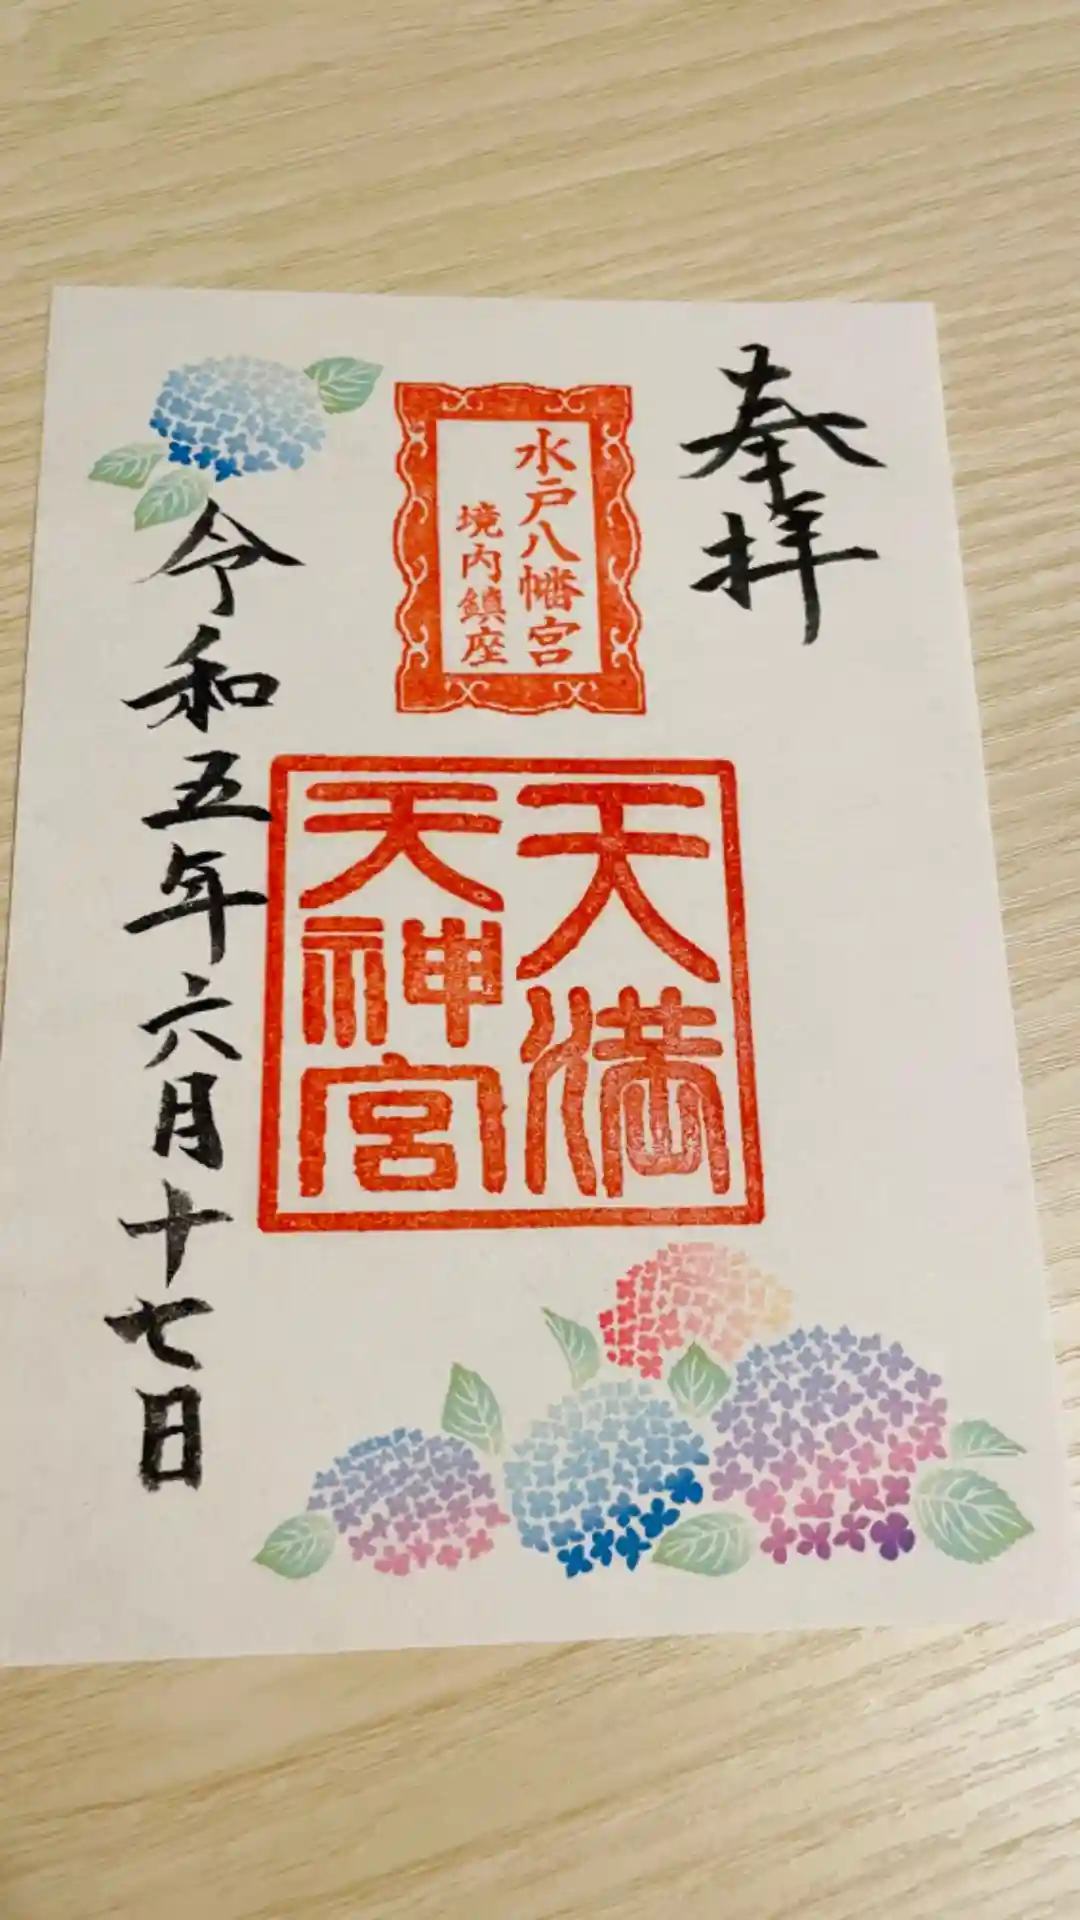 奉拝
水戸八幡宮
境内鎮座
天満
天神宮
令和五年六月十七日